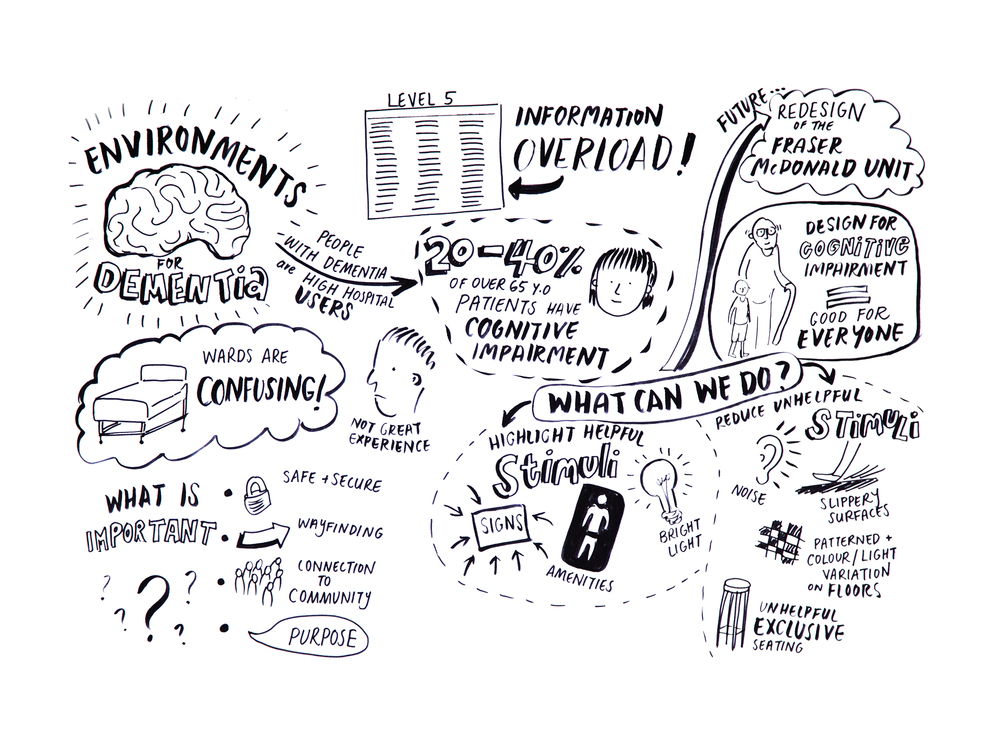 ENVIRONMENTS
FOR
DEMENTia
PEOPLE
WITH DEMENTIA
are HIGH HOSPITAL
USERS
LEVEL 5
INFORMATION
OVERLOAD!
20-40%
OF OVER 65 Y.O
PATIENTS HAVE
COGNITIVE
IMPAIRMENT
FUTURE...
REDESIGN
OF THE
FRASER
McDONALD UNIT
DESIGN FOR
COGNITIVE
IMPAIRMENT
=
GOOD FOR
EVERYONE
WARDS ARE
CONFUSING!
NOT GREAT
EXPERIENCE
WHAT IS
IMPORTANT
? ? ? ? ?
• SAFE + SECURE
• WAYFINDING
• CONNECTION
TO
COMMUNITY
• PURPOSE
WHAT CAN WE DO?
HIGHLIGHT HELPFUL
Stimuli
SIGNS
AMENITIES
BRIGHT
LIGHT
REDUCE UNHELPFUL
STiMULi
NOISE
SLIPPERY
SURFACES
PATTERNED +
COLOUR/LIGHT
VARIATION
ON FLOORS
UNHELPFUL
EXCLUSIVE
SEATING